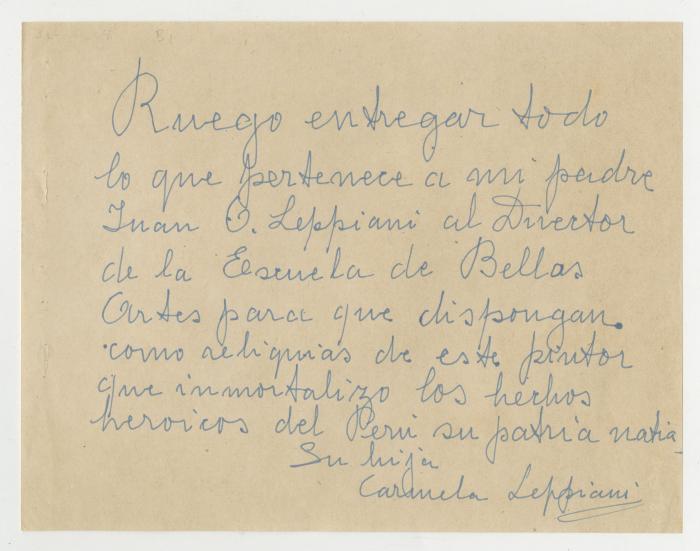 Ruego entregar todo
lo que pertenece a mi padre
Juan O. Leppiani al Director
de la Escuela de Bellas
Artes para que dispongan.
como reliquias de este pintor
que inmortalizo los hechos
heroicos del Perú su patria natia
Su hija
Carmela Leppiani